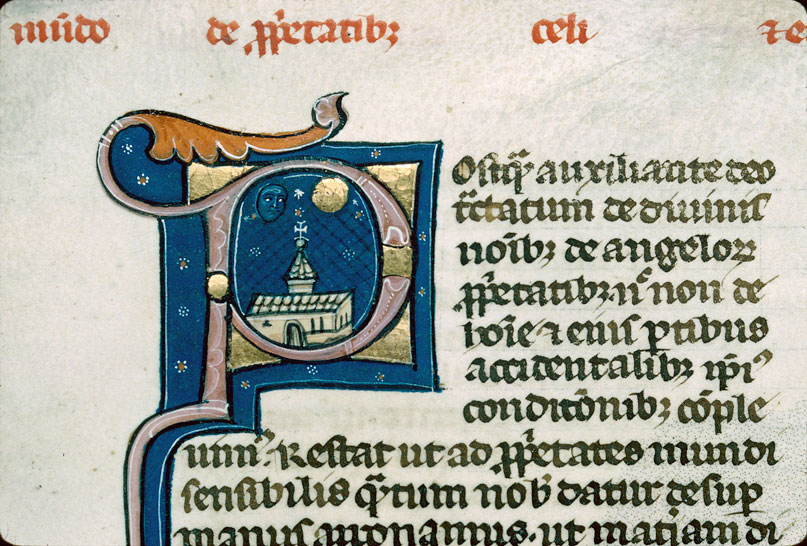 mūdo de ꝓp̄etatibꝫ celi ⁊ c
P Ostq̄ȝ auxiliante deo
tᷓctatum de diuinis
noībꝫ de angeloꝝ
ꝓp̄etatibꝫ. n̄ non de
hoīe ⁊ eius ꝑtibus
accidentalibꝫ ip̄iꝰ
conditōnibꝫ cōple
uimꝰ. Restat ut ad ꝓp̄etates mundi
sensibilis q̄ȝtum nob̄ datur desuꝑ
manus apponamus. ut mat̄iam di